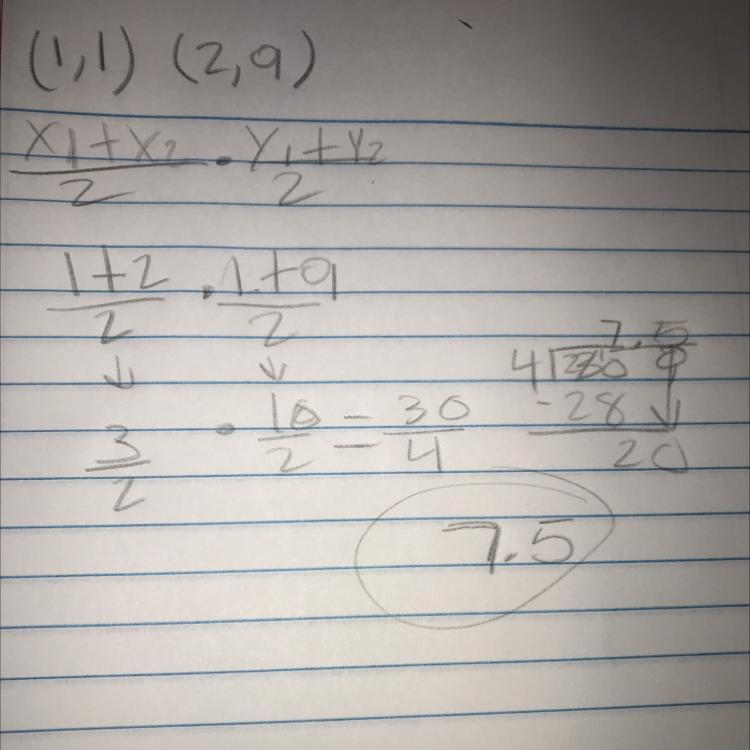 (1,1) (2,9)
x₁+x₂/2 · y₁+y₂/2
1+2/2 · 1+9/2
↓ ↓
3/2 · 10/2 = 30/4
7.5
4
-28
20
7.5